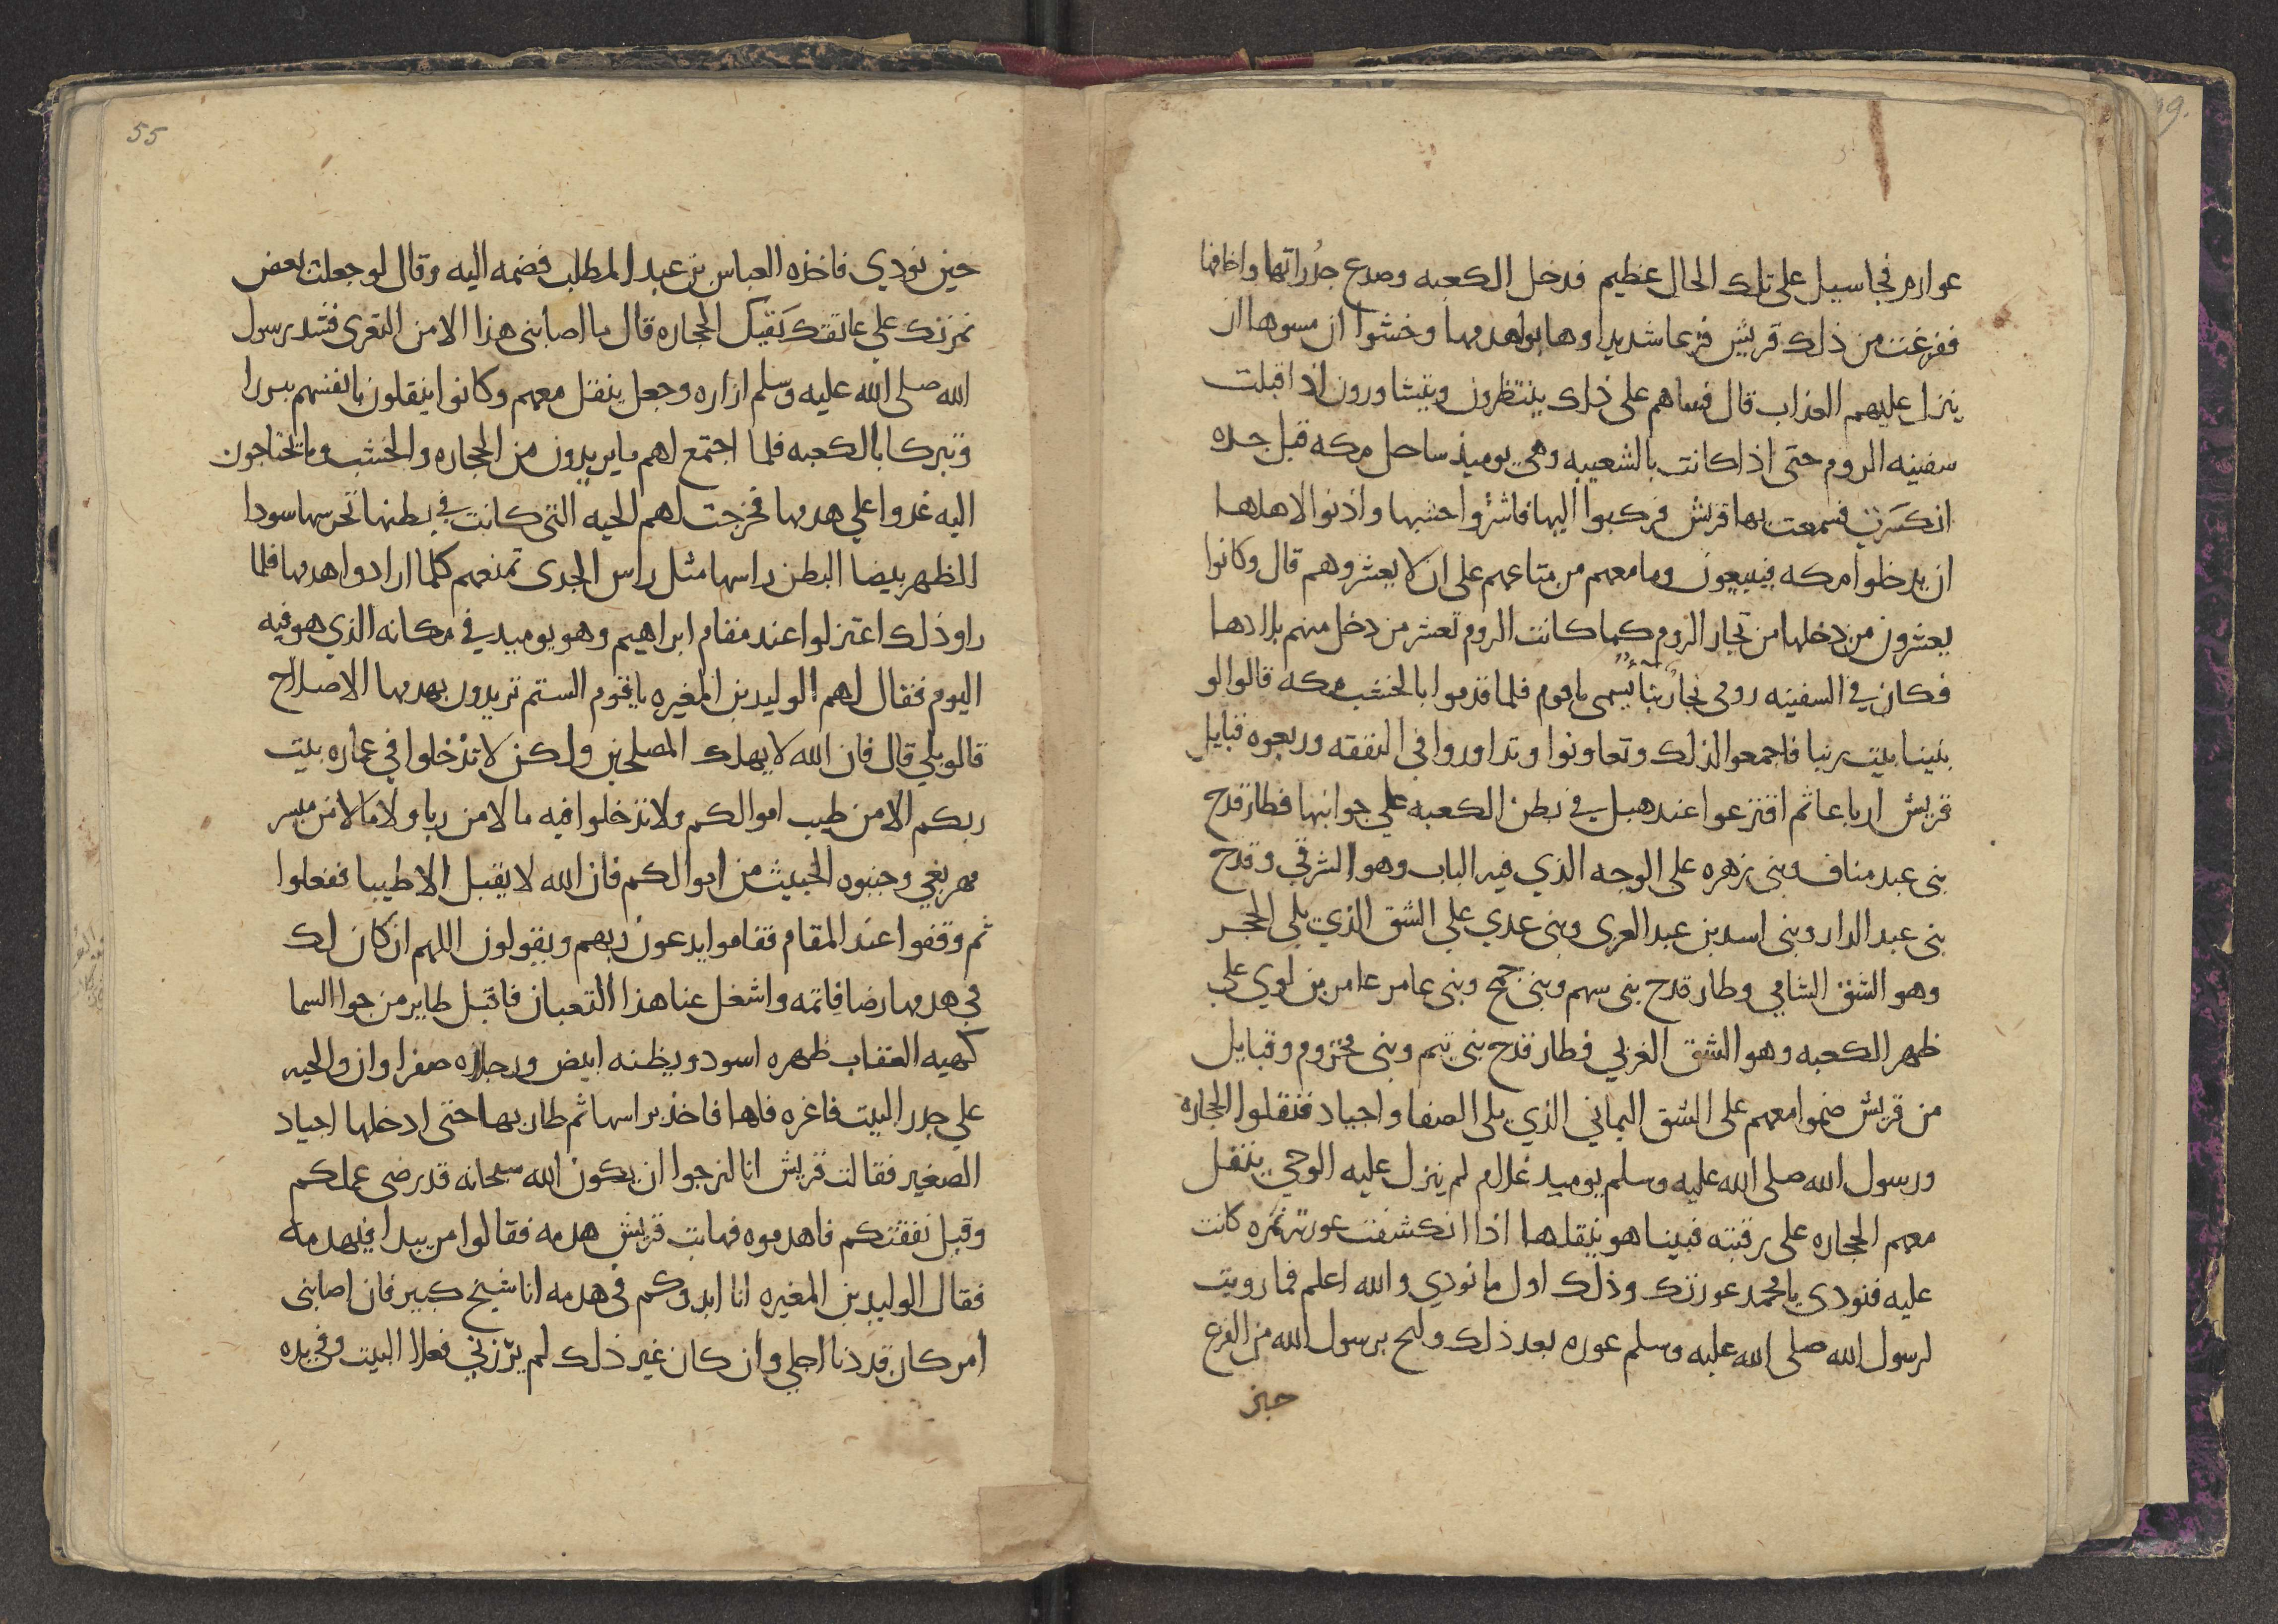 عوارم فجا سيل على تلك الحال عظيم فدخل الكعبه وصدع جدراتها واخافها
ففزعت من ذلك قريش فزعا شديدا وهابوا هدمها وخشوا ان مسوها ان
ينزل عليهم العذاب قال فبيناهم على ذلك ينتظرون ويتشاورون اذ اقبلت
سفينه الروم حتى اذا كانت بالشعيبه وهي يوميذ ساحل مكه قبل جده
انكسرت فسمعت بها قريش فركبوا اليها فاشتروا خشبها واذنوا لاهلها
ان يدخلوا مكه فيبيعون وما معهم من متاعهم على ان لا يعشروهم قال وكانوا
يعشرون من دخلها من تجار الروم كما كانت الروم تعشر من دخل منهم بلادها
فكان في السفينه رومى نجار بنا يسمى باقوم فلما قدموا بالخشب مكه قالوا لو
بنينا بيت ربنا فاجمعوا لذلك وتعاونوا وتداوروا في النفقه وربعوه قبايل
قريش ارباعا ثم اقترعوا عند هبل في بطن الكعبه علي جوانبها فطار قدح
بنى عبد مناف وبنى زهره على الوجه الذي فيه الباب وهو الشرقي وقدح
بنى عبد الدار وبنى اسد بن عبد العزى وبنى عدي علي الشق الذي يلى الحجر
وهو الشق الشامي وطار قدح بنى سهم وبنى جمح وبنى عامر عامر بن لوي علي
ظهر الكعبه وهو الشق الغربي فطار قدح بنى تيم وبنى مخزوم وقبايل
من قريش ضموا معهم على الشق اليماني الذي يلى الصفا واجياد فنقلوا الحجاره
ورسول الله صلى الله عليه وسلم يوميد غلام لم ينزل عليه الوحي ينقل
معهم الحجاره على رقبته فبينا هو ينقلها اذا انكشفت عورته نمره كانت
عليه فنودى يا محمد عورتك وذلك اول ما نودي والله اعلم فما رويت
لرسول الله صلى الله عليه وسلم عوره بعد ذلك ولبج برسول الله من الفزع
حين
55
حين نودي فاخذه العباس بن عبد المطلب فضمه اليه وقال لو جعلت بعض
نمرتك علي عاتقك تقيك الحجاره قال ما اصابنى هذا الا من التعرى فشد رسول
الله صلى الله عليه وسلم ازاره وجعل ينقل معهم وكانوا ينقلون بانفسهم تبررا
وتبركا بالكعبه فلما اجتمع لهم ما يريدون من الحجاره والخشب وما يحتاجون
اليه غدوا علي هدمها فخرجت لهم الحيه التى كانت في بطنها تحرسها سودا
الظهر بيضا البطن راسها مثل راس الجدى تمنعهم كلما ارادوا هدمها فلما
راو ذلك اعتزلوا عند مقام ابراهيم وهو يوميد في مكانه الذي هو فيه
اليوم فقال لهم الوليد بن المغيره يا قوم الستم تريدون بهدمها الاصلاح
قالو بلي قال فان الله لا يهلك المصلحين ولكن لا تدخلوا في عماره بيت
ربكم الا من طيب اموالكم ولا تدخلوا فيه مالا من ربا ولا مالا من ميسر
مهر بغي وجنبوه الخبيث من اموالكم فان الله لا يقبل الا طيبا ففعلوا
ثم وقفوا عند المقام فقاموا يدعون ربهم ويقولون اللهم ان كان لك
في هدمها رضا فاتمه واشغل عنا هذا الثعبان فاقبل طاير من جوا السما
كهيه العقاب ظهره اسود وبطنه ابيض ورجلاه صفراوان والحيه
علي جدر البيت فاغره فاها فاخذ براسها ثم طار بها حتى ادخلها اجياد
الصغير فقالت قريش انا لنرجوا ان يكون الله سبحانه قد رضى عملكم
وقبل نفقتكم فاهدموه فهابت قريش هدمه فقالوا من يبدا فيهدمه
فقال الوليد بن المغيره انا ابدوكم في هدمه انا شيخ كبير فان اصابنى
امر كان قد دنا اجلي وان كان غير ذلك لم يرزني فعلا البيت وفي يده